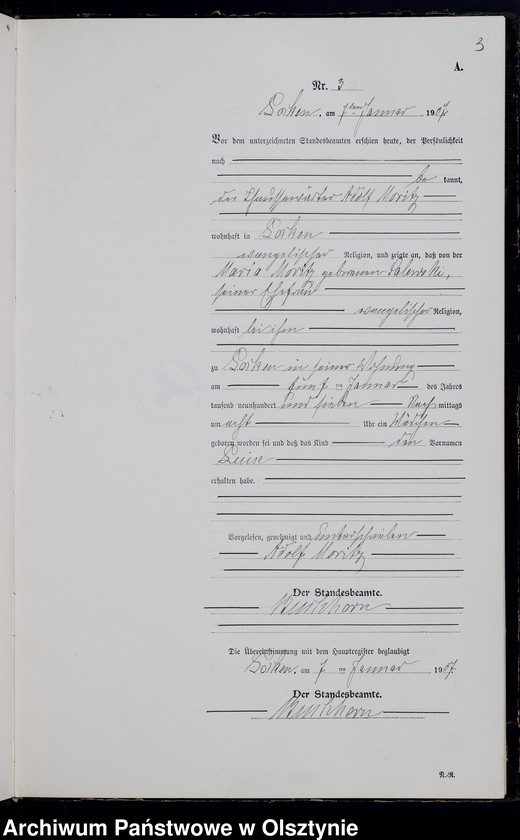 3
A.
Nr. 3
am 7ten Januar 1907.
Vor dem unterzeichneten Standesbeamten erschien heute, der Persönlichkeit
nach
be kannt,
der Chausseewärter Adolf Moritz
wohnhaft in
evangelischer Religion, und zeigte an, daß von der
Maria Moritz geborenen
seiner Ehefrau
evangelischer Religion,
wohnhaft bei ihm
zu in seiner Wohnung
am fünf ten Januar des Jahres
tausend neunhundert und sieben Nach mittags
um acht Uhr ein Mädchen
geboren worden sei und daß das Kind den Vornamen
Luise
erhalten habe.
Vorgelesen, genehmigt und unterschrieben
Adolf Moritz
Der Standesbeamte.
Die Übereinstimmung mit dem Hauptregister beglaubigt
am 7. ten Januar 1907.
Der Standesbeamte.
N.-R.
Archiwum Państwowe w Olsztynie